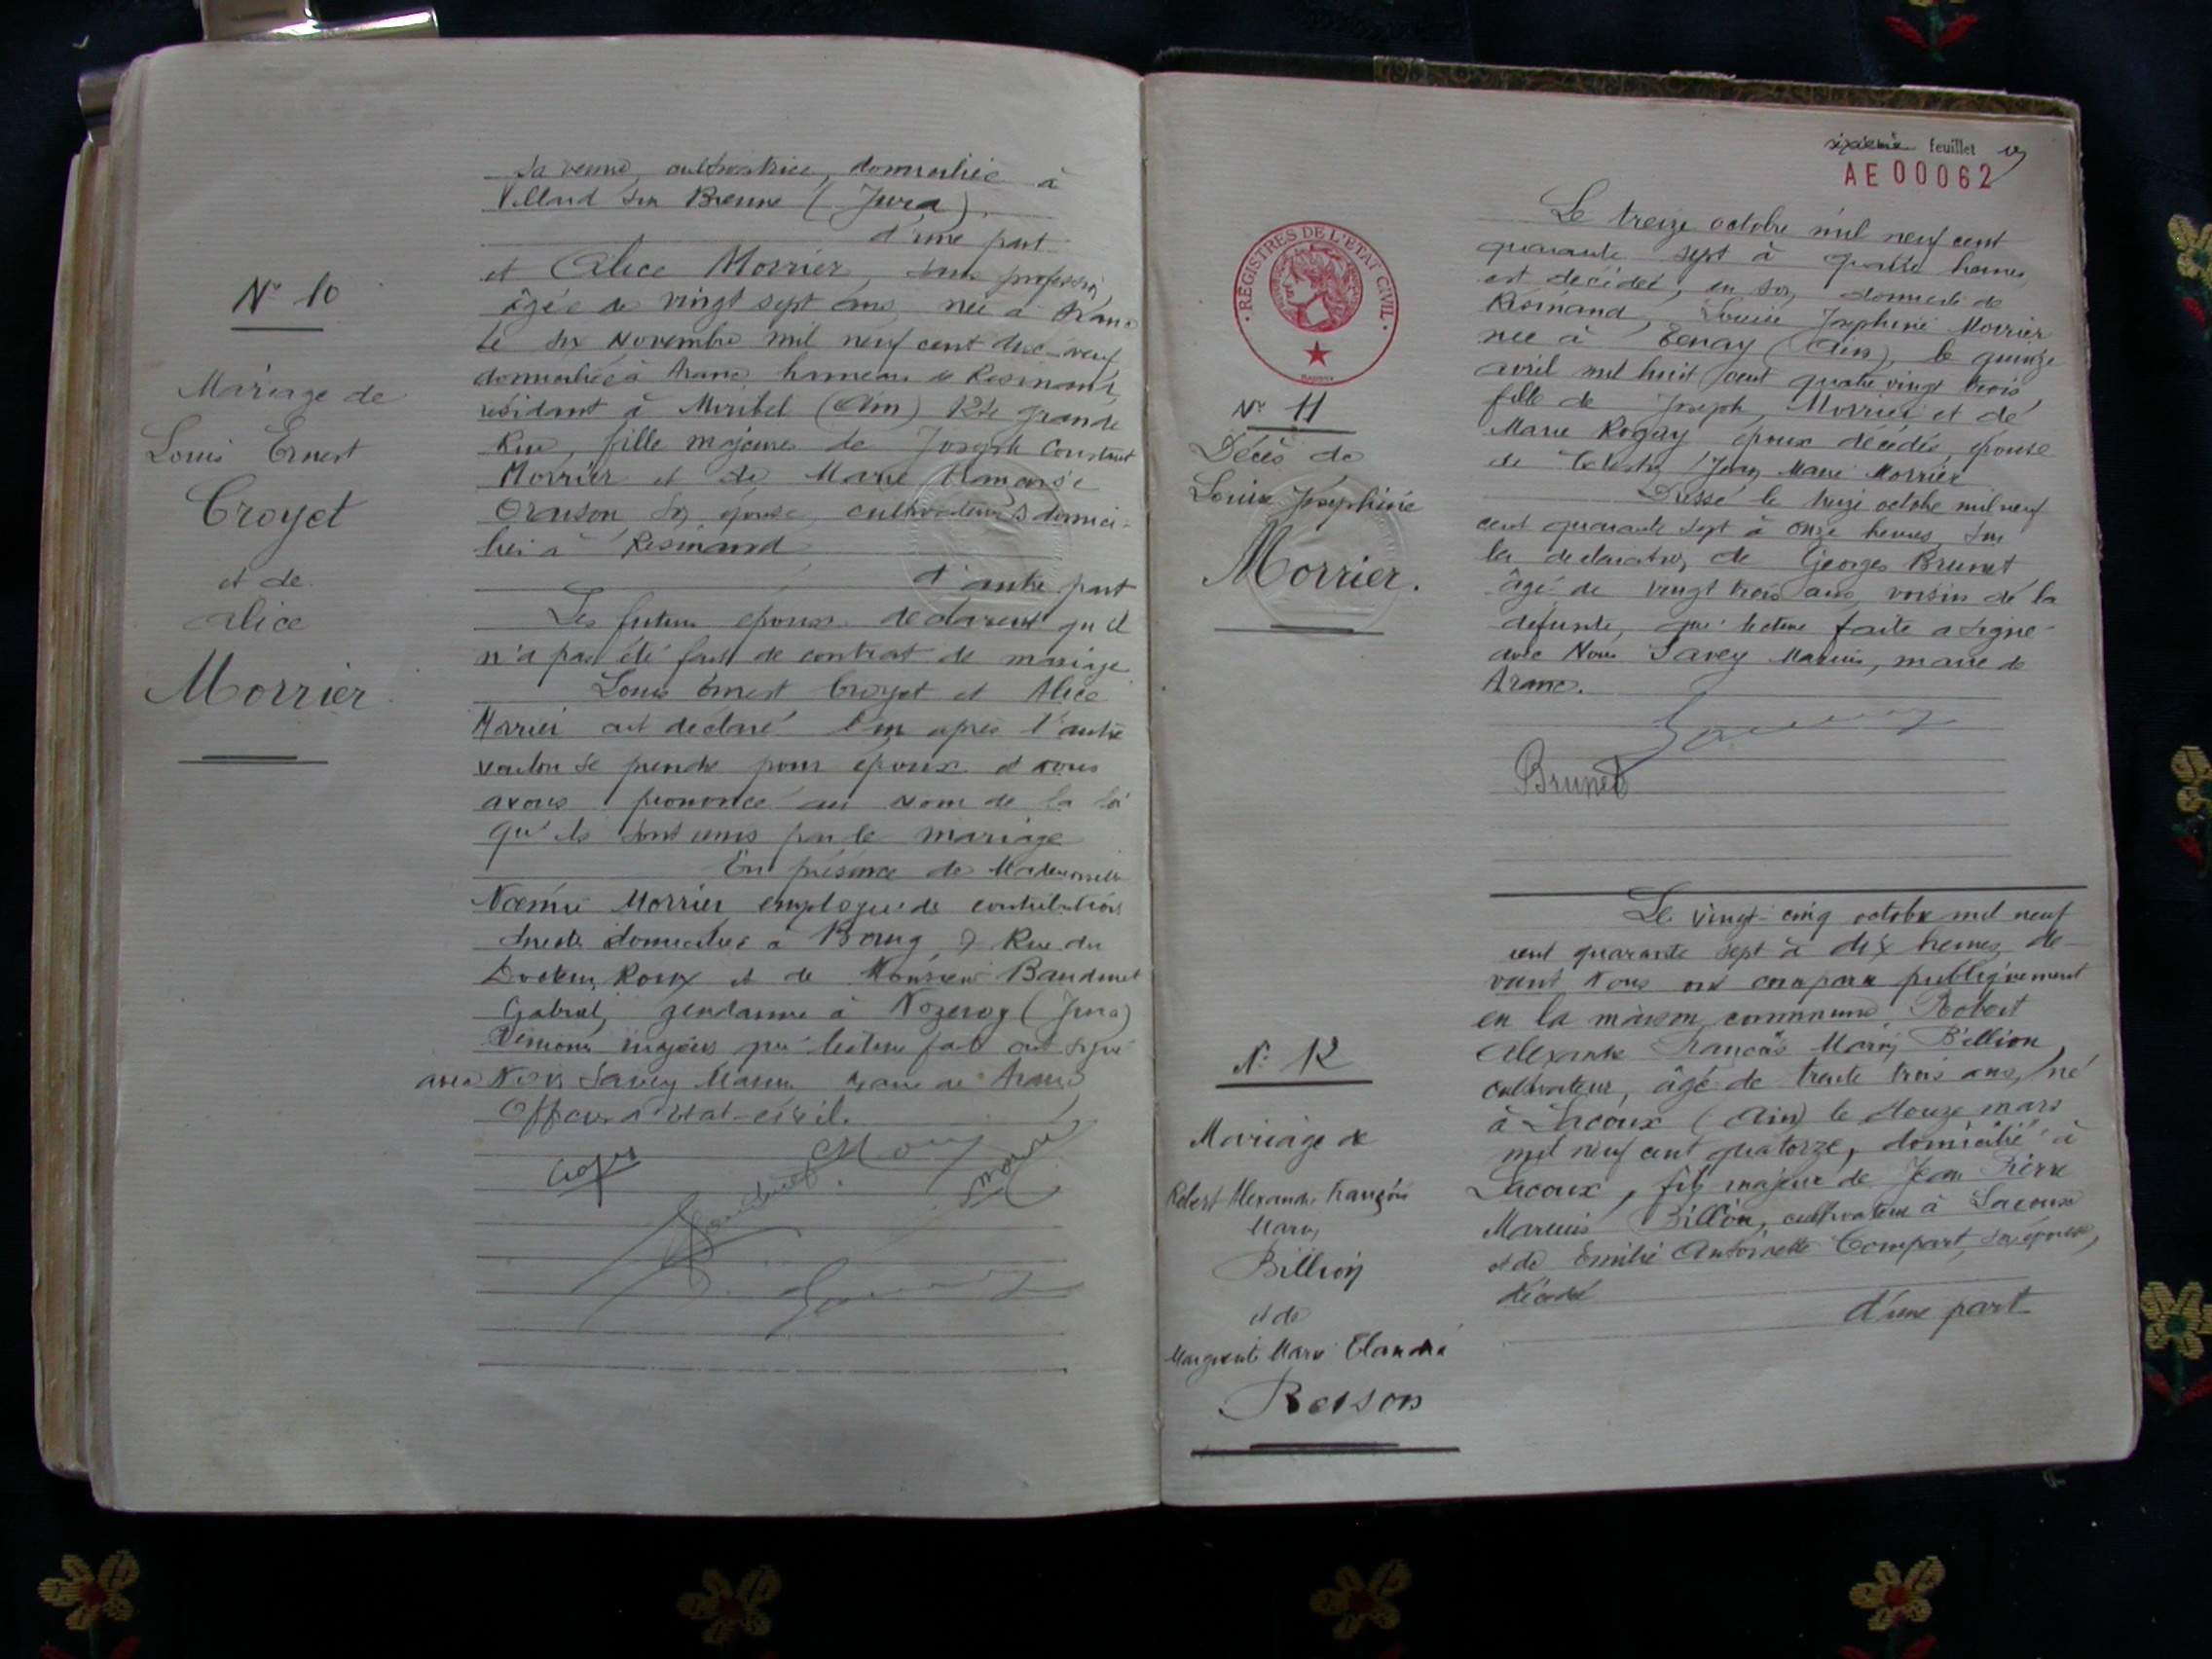 sa veuve, cultivatrice, domiciliée à
Villard sur Brenne (Jura).
d'une part
et Alice Morrier, sans profession,
âgée de vingt sept ans, née à Aranc
le six Novembre mil neuf cent dix-neuf
domiciliée à Aranc, hameau de Resinand
résidant à Miribel (Ain) 124 grande
Rue, fille majeure de Joseph Constant
Morrier et de Marie Françoise
Oraison son épouse, cultivateurs domici-
liés à Resinand
d'autre part
Les futurs époux déclarent qu'il
n'a pas été fait de contrat de mariage
Louis Ernest Croyet et Alice
Morrier ont déclaré l'un après l'autre
vouloir se prendre pour époux et nous
avons prononcé au nom de la loi
qu'ils sont unis par le mariage
En présence de Mademoiselle
Noémie Morrier employée des contributions
directes domiciliée à Bourg, 7 Rue du
Docteur Roux et de Monsieur Baudinet
Gabriel, gendarme à Nozeroy (Jura)
Témoins majeurs qui lecture faite ont signé
avec Nous Savey Marius maire de Aranc
Officier d'état-civil.
N° 10
Mariage de
Louis Ernest
Croyet
et de
Alice
Morrier
sixième feuillet
AE 00062
Le treize octobre mil neuf cent
quarante sept à quatre heures
est décédée, en son domicile de
Resinand, Louise Joséphine Morrier
née à Tenay (Ain), le quinze
avril mil huit cent quatre vingt trois,
fille de Joseph Morrier et de
Marie Rogay époux décédés, épouse
de Célestin Jean Marie Morrier
Dressé le treize octobre mil neuf
cent quarante sept à onze heures, sur
la déclaration de Georges Brunet
âgé de vingt trois ans, voisin de la
défunte, qui lecture faite a signé
avec Nous Savey Marius, maire de
Aranc.
Brunet
REGISTRES DE L'ETAT CIVIL
N° 11
Décès de
Louise Joséphine
Morrier.
Le vingt-cinq octobre mil neuf
cent quarante sept à dix heures, de-
vant Nous ont comparu publiquement
en la maison commune Robert
Alexandre François Marie Billion,
cultivateur, âgé de trente trois ans, né
à Lacoux (Ain) le douze mars
mil neuf cent quatorze, domicilié à
Lacoux, fils majeur de Jean Pierre
Marius Billion, cultivateur à Lacoux
et de Emilie Antoinette Compart, son épouse,
décédée
d'une part
N° 12
Mariage de
Robert Alexandre François
Marie
Billion
et de
Marguerite Marie Claudia
Reison